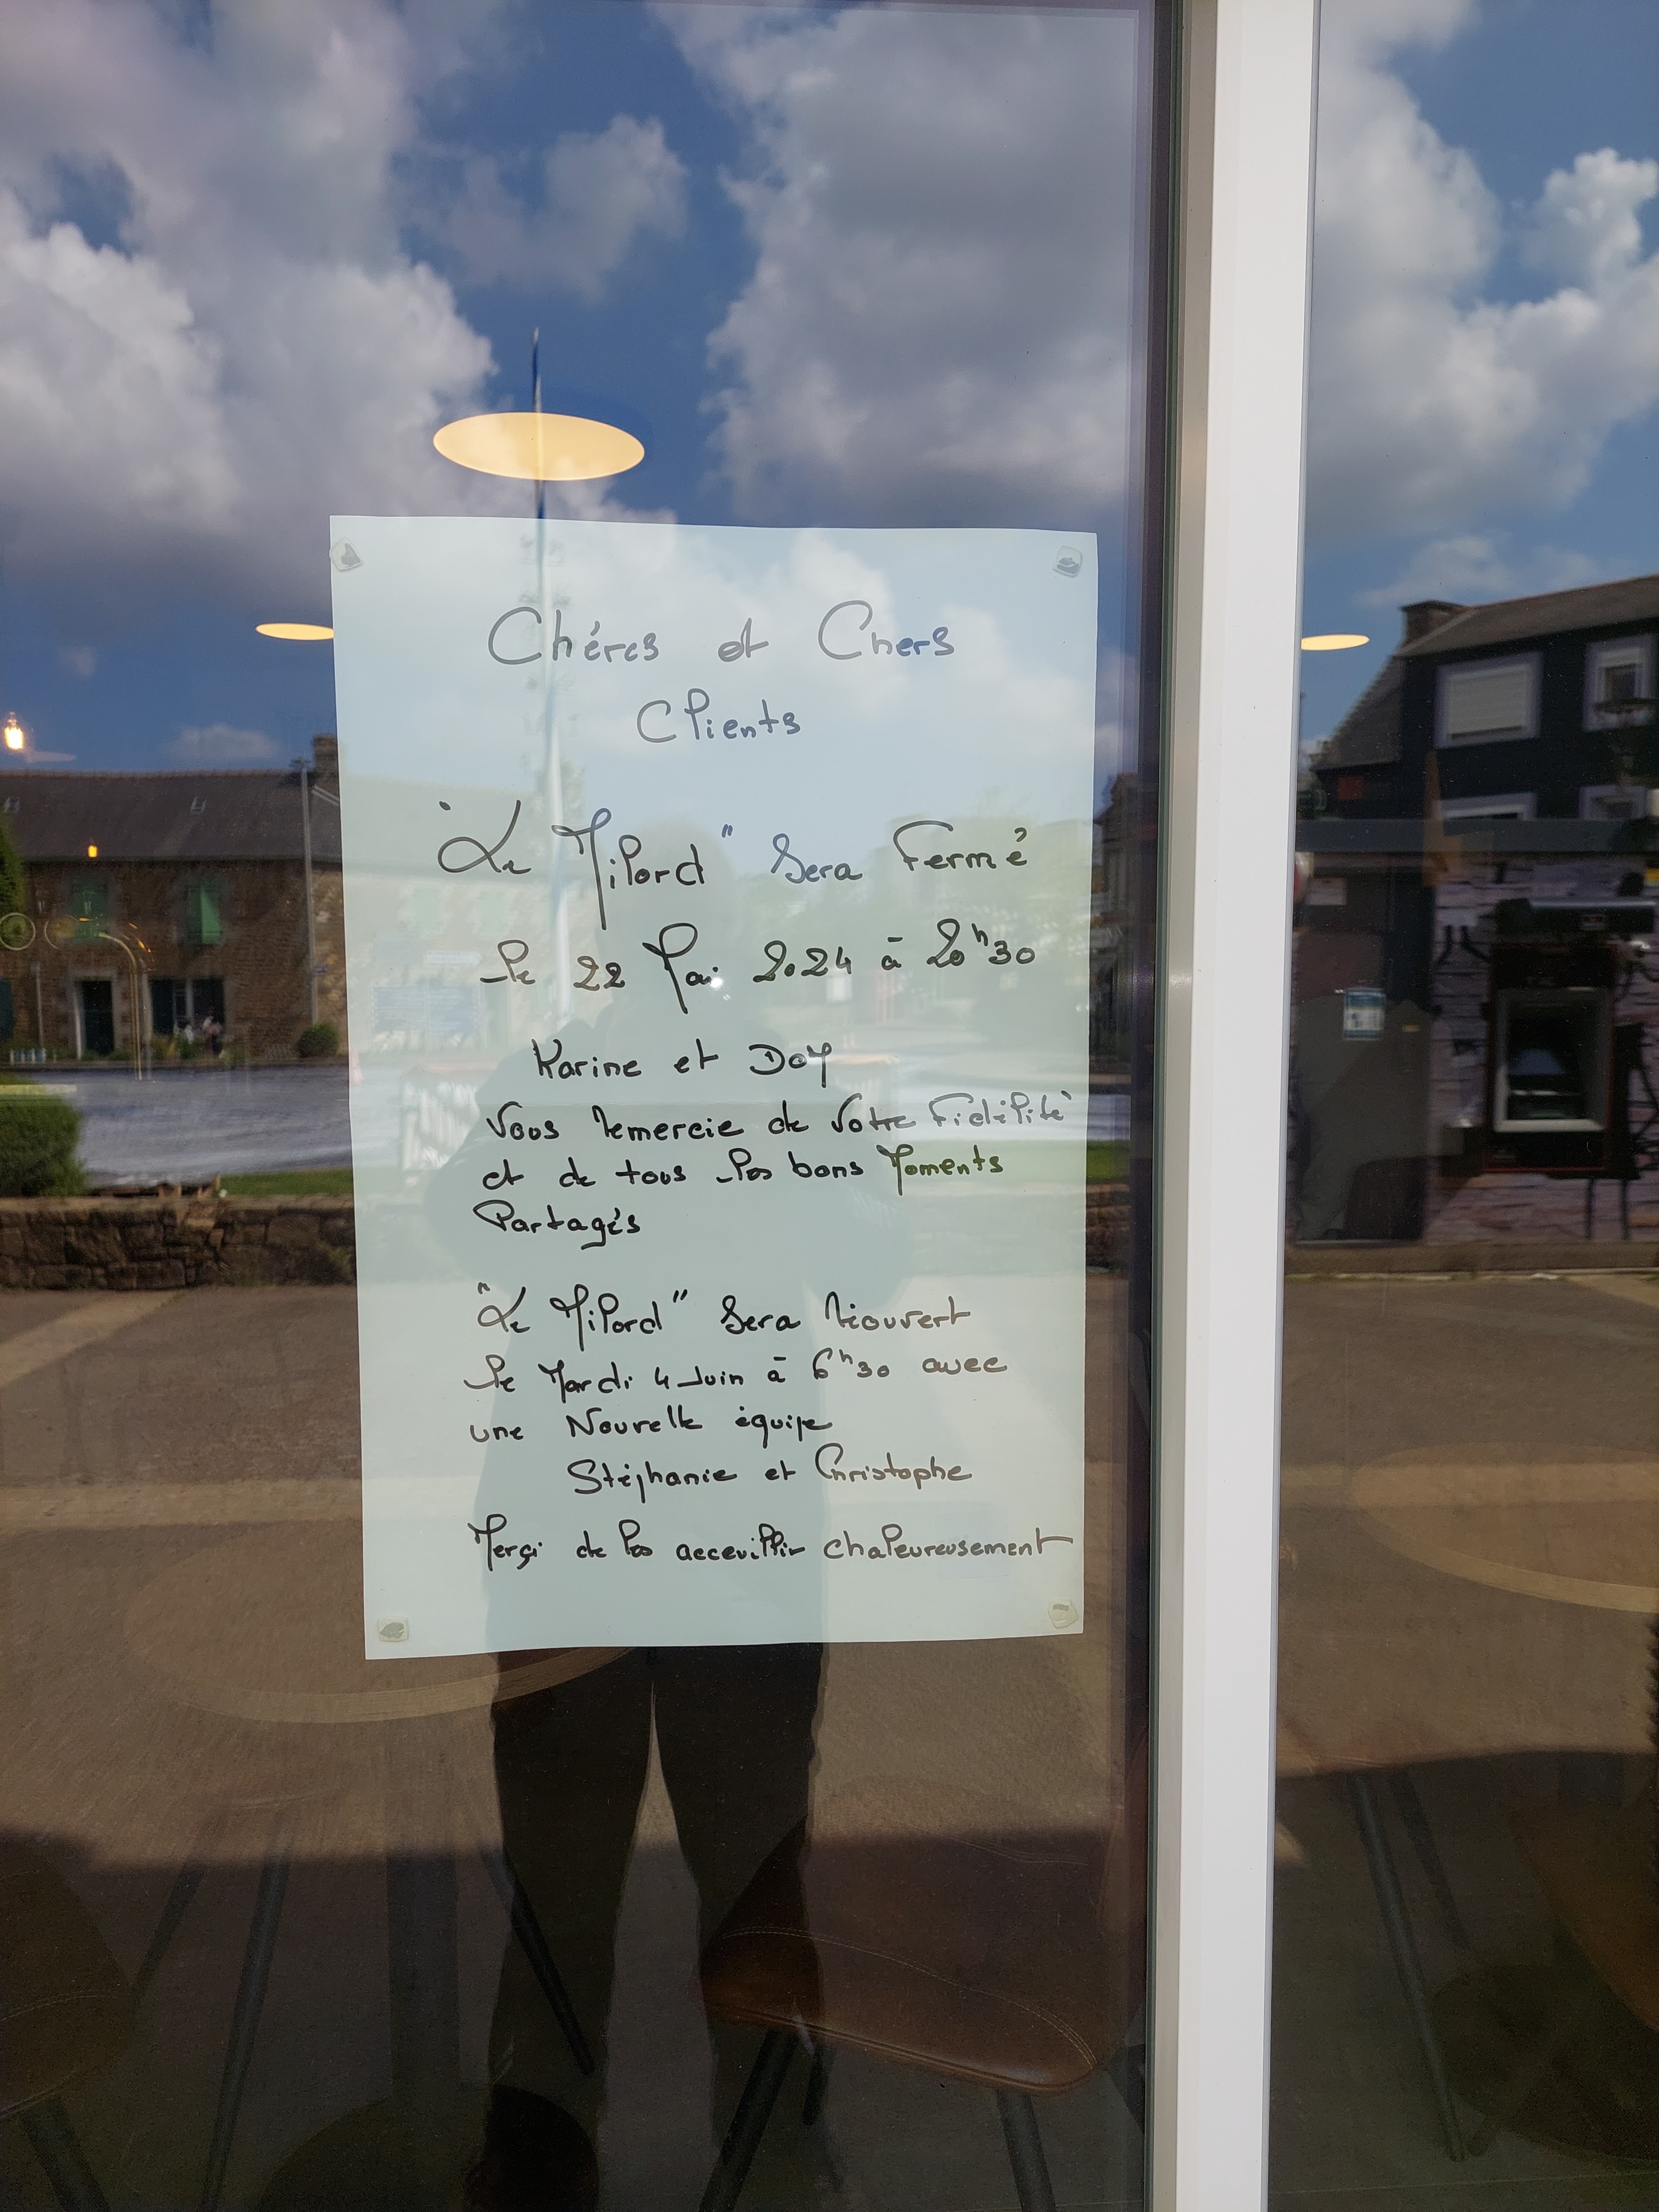 Chéres et Chers
Clients
"Le Milord" Sera Fermé
le 22 Mai 2024 à 20h30
Karine et Dom
Vous Remercie de Votre Fidélité
et de tous les bons Moments
Partagés
"Le Milord" Sera Réouvert
le Mardi 4 Juin à 6h30 avec
une Nouvelle équipe
Stéphanie et Christophe
Merçi de les acceuillir chaleureusement